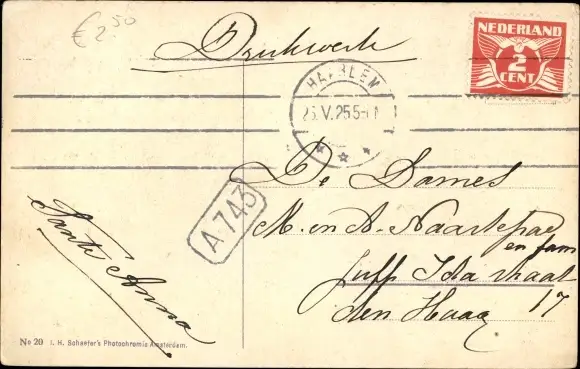 € 2 50
Drukwerk
NEDERLAND
2
CENT
HAARLEM
25.V.25 5-6 N
De Dames
M. en A. Naartepad
en fam
Juff Ida straat
17
den Haag
A 743
Tante Anna
No 20 I. H. Schaefer's Photochromie Amsterdam.